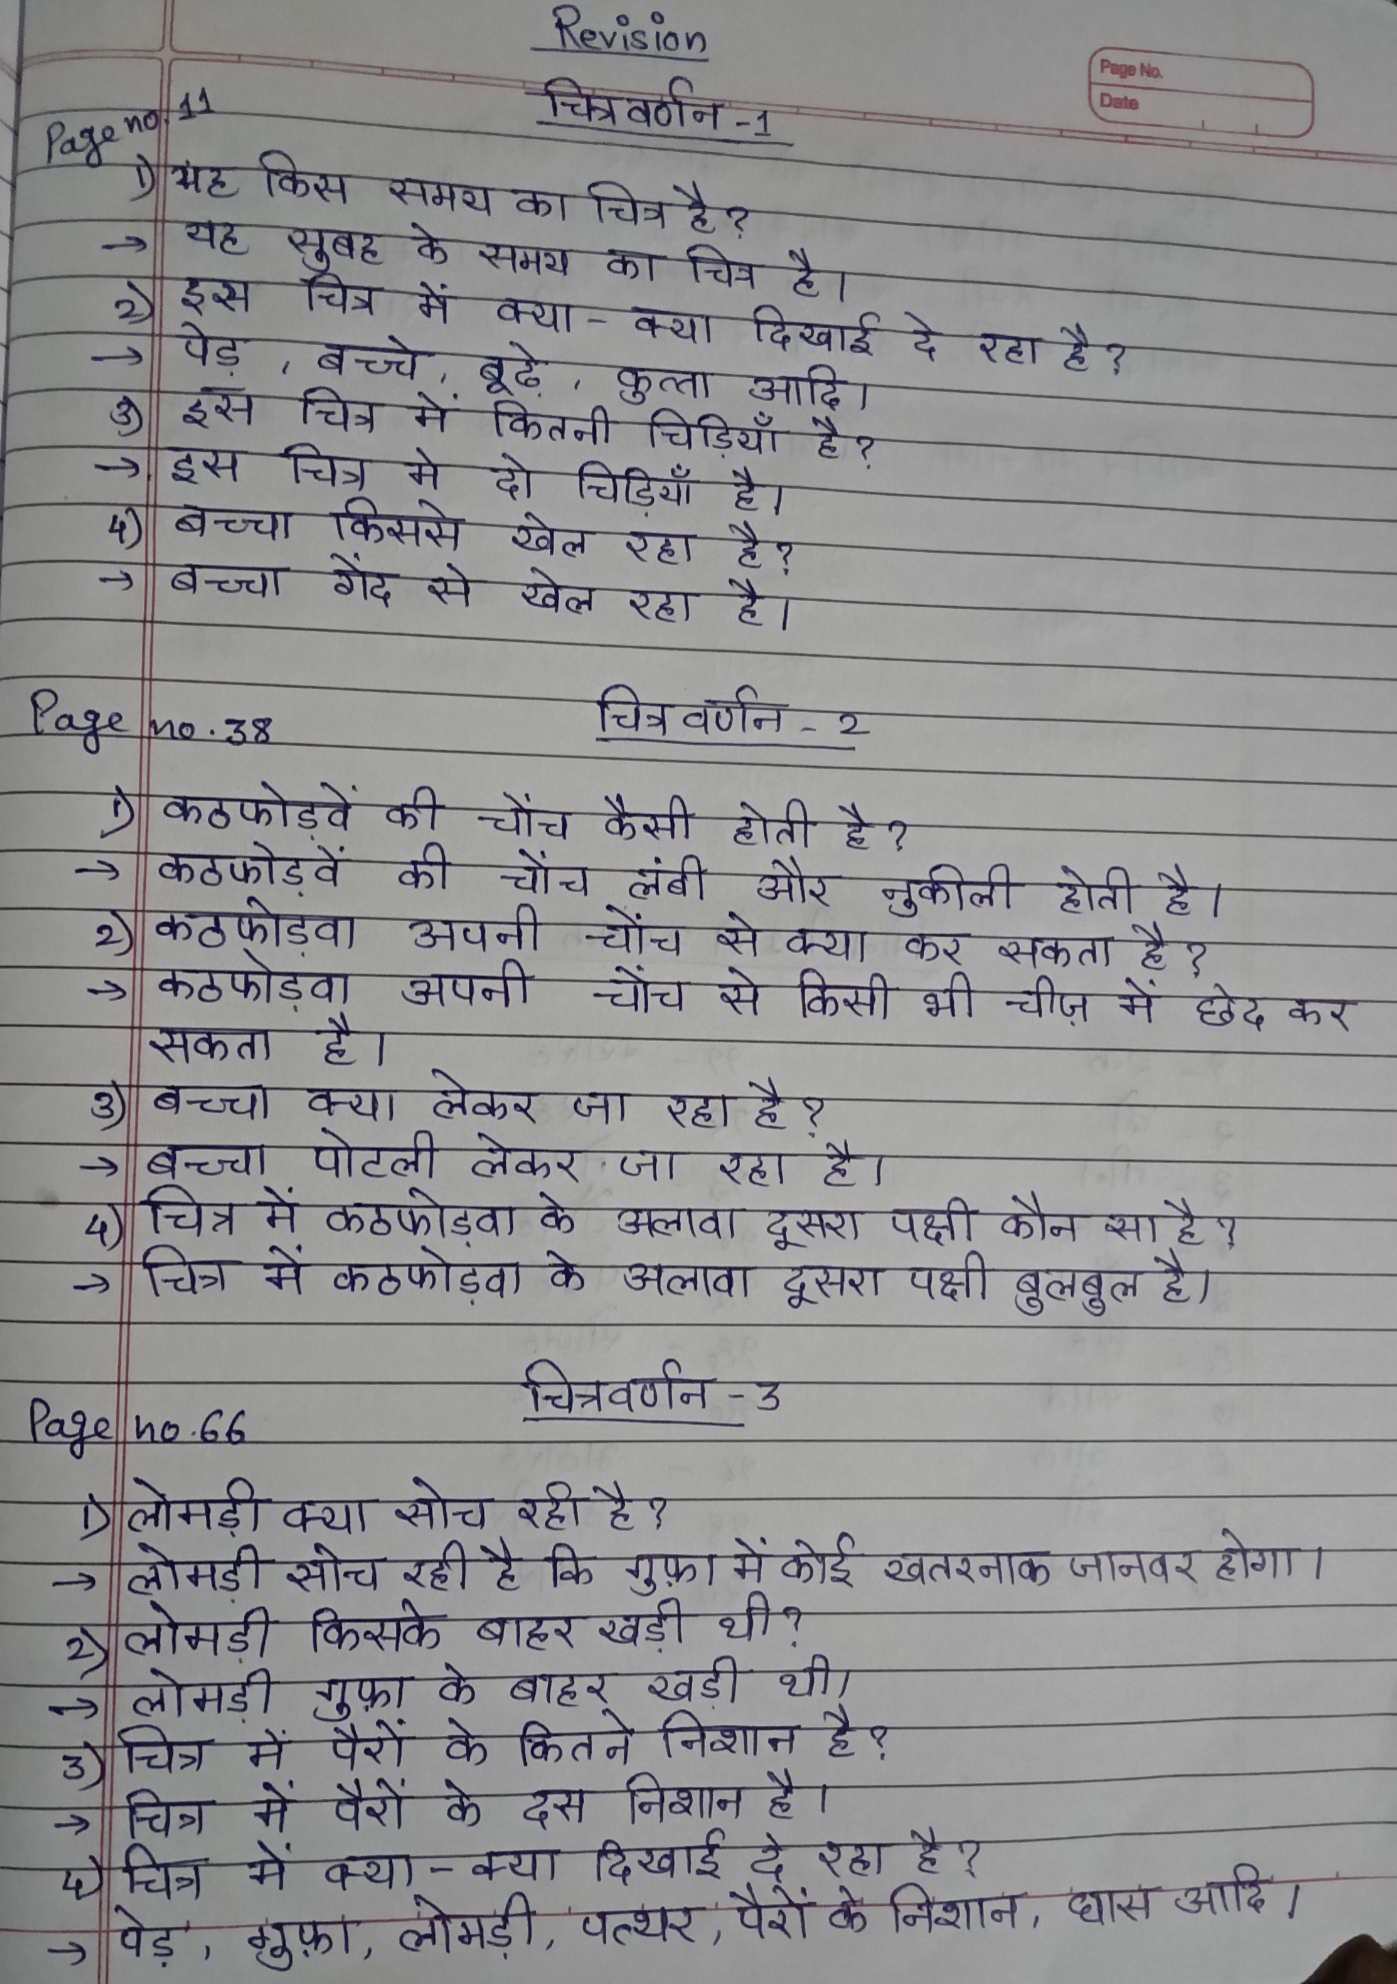 Revision
Page No.
Date
Page no. 11
चित्रवर्णन - 1
1) यह किस समय का चित्र है?
→ यह सुबह के समय का चित्र है।
2) इस चित्र में क्या - क्या दिखाई दे रहा है?
→ पेड़, बच्चे, बूढ़े, कुत्ता आदि।
3) इस चित्र में कितनी चिड़ियाँ है?
→ इस चित्र मे दो चिड़ियाँ है।
4) बच्चा किससे खेल रहा है?
→ बच्चा गेंद से खेल रहा है।
Page no. 38
चित्रवर्णन - 2
1) कठफोड़वें की चोंच कैसी होती है?
→ कठफोड़वें की चोंच लंबी और नुकीली होती है।
2) कठफोड़वा अपनी चोंच से क्या कर सकता है?
→ कठफोड़वा अपनी चोंच से किसी भी चीज़ में छेद कर
सकता है।
3) बच्चा क्या लेकर जा रहा है?
→ बच्चा पोटली लेकर जा रहा है।
4) चित्र में कठफोड़वा के अलावा दूसरा पक्षी कौन सा है?
→ चित्र में कठफोड़वा के अलावा दूसरा पक्षी बुलबुल है।
चित्रवर्णन - 3
Page no. 66
1) लोमड़ी क्या सोच रही है?
→ लोमड़ी सोच रही है कि गुफ़ा में कोई खतरनाक जानवर होगा।
2) लोमड़ी किसके बाहर खड़ी थी?
→ लोमड़ी गुफ़ा के बाहर खड़ी थी।
3) चित्र में पैरों के कितने निशान है?
→ चित्र में पैरों के दस निशान है।
4) चित्र में क्या - क्या दिखाई दे रहा है?
→ पेड़, गुफ़ा, लोमड़ी, पत्थर, पैरों के निशान, घास आदि।